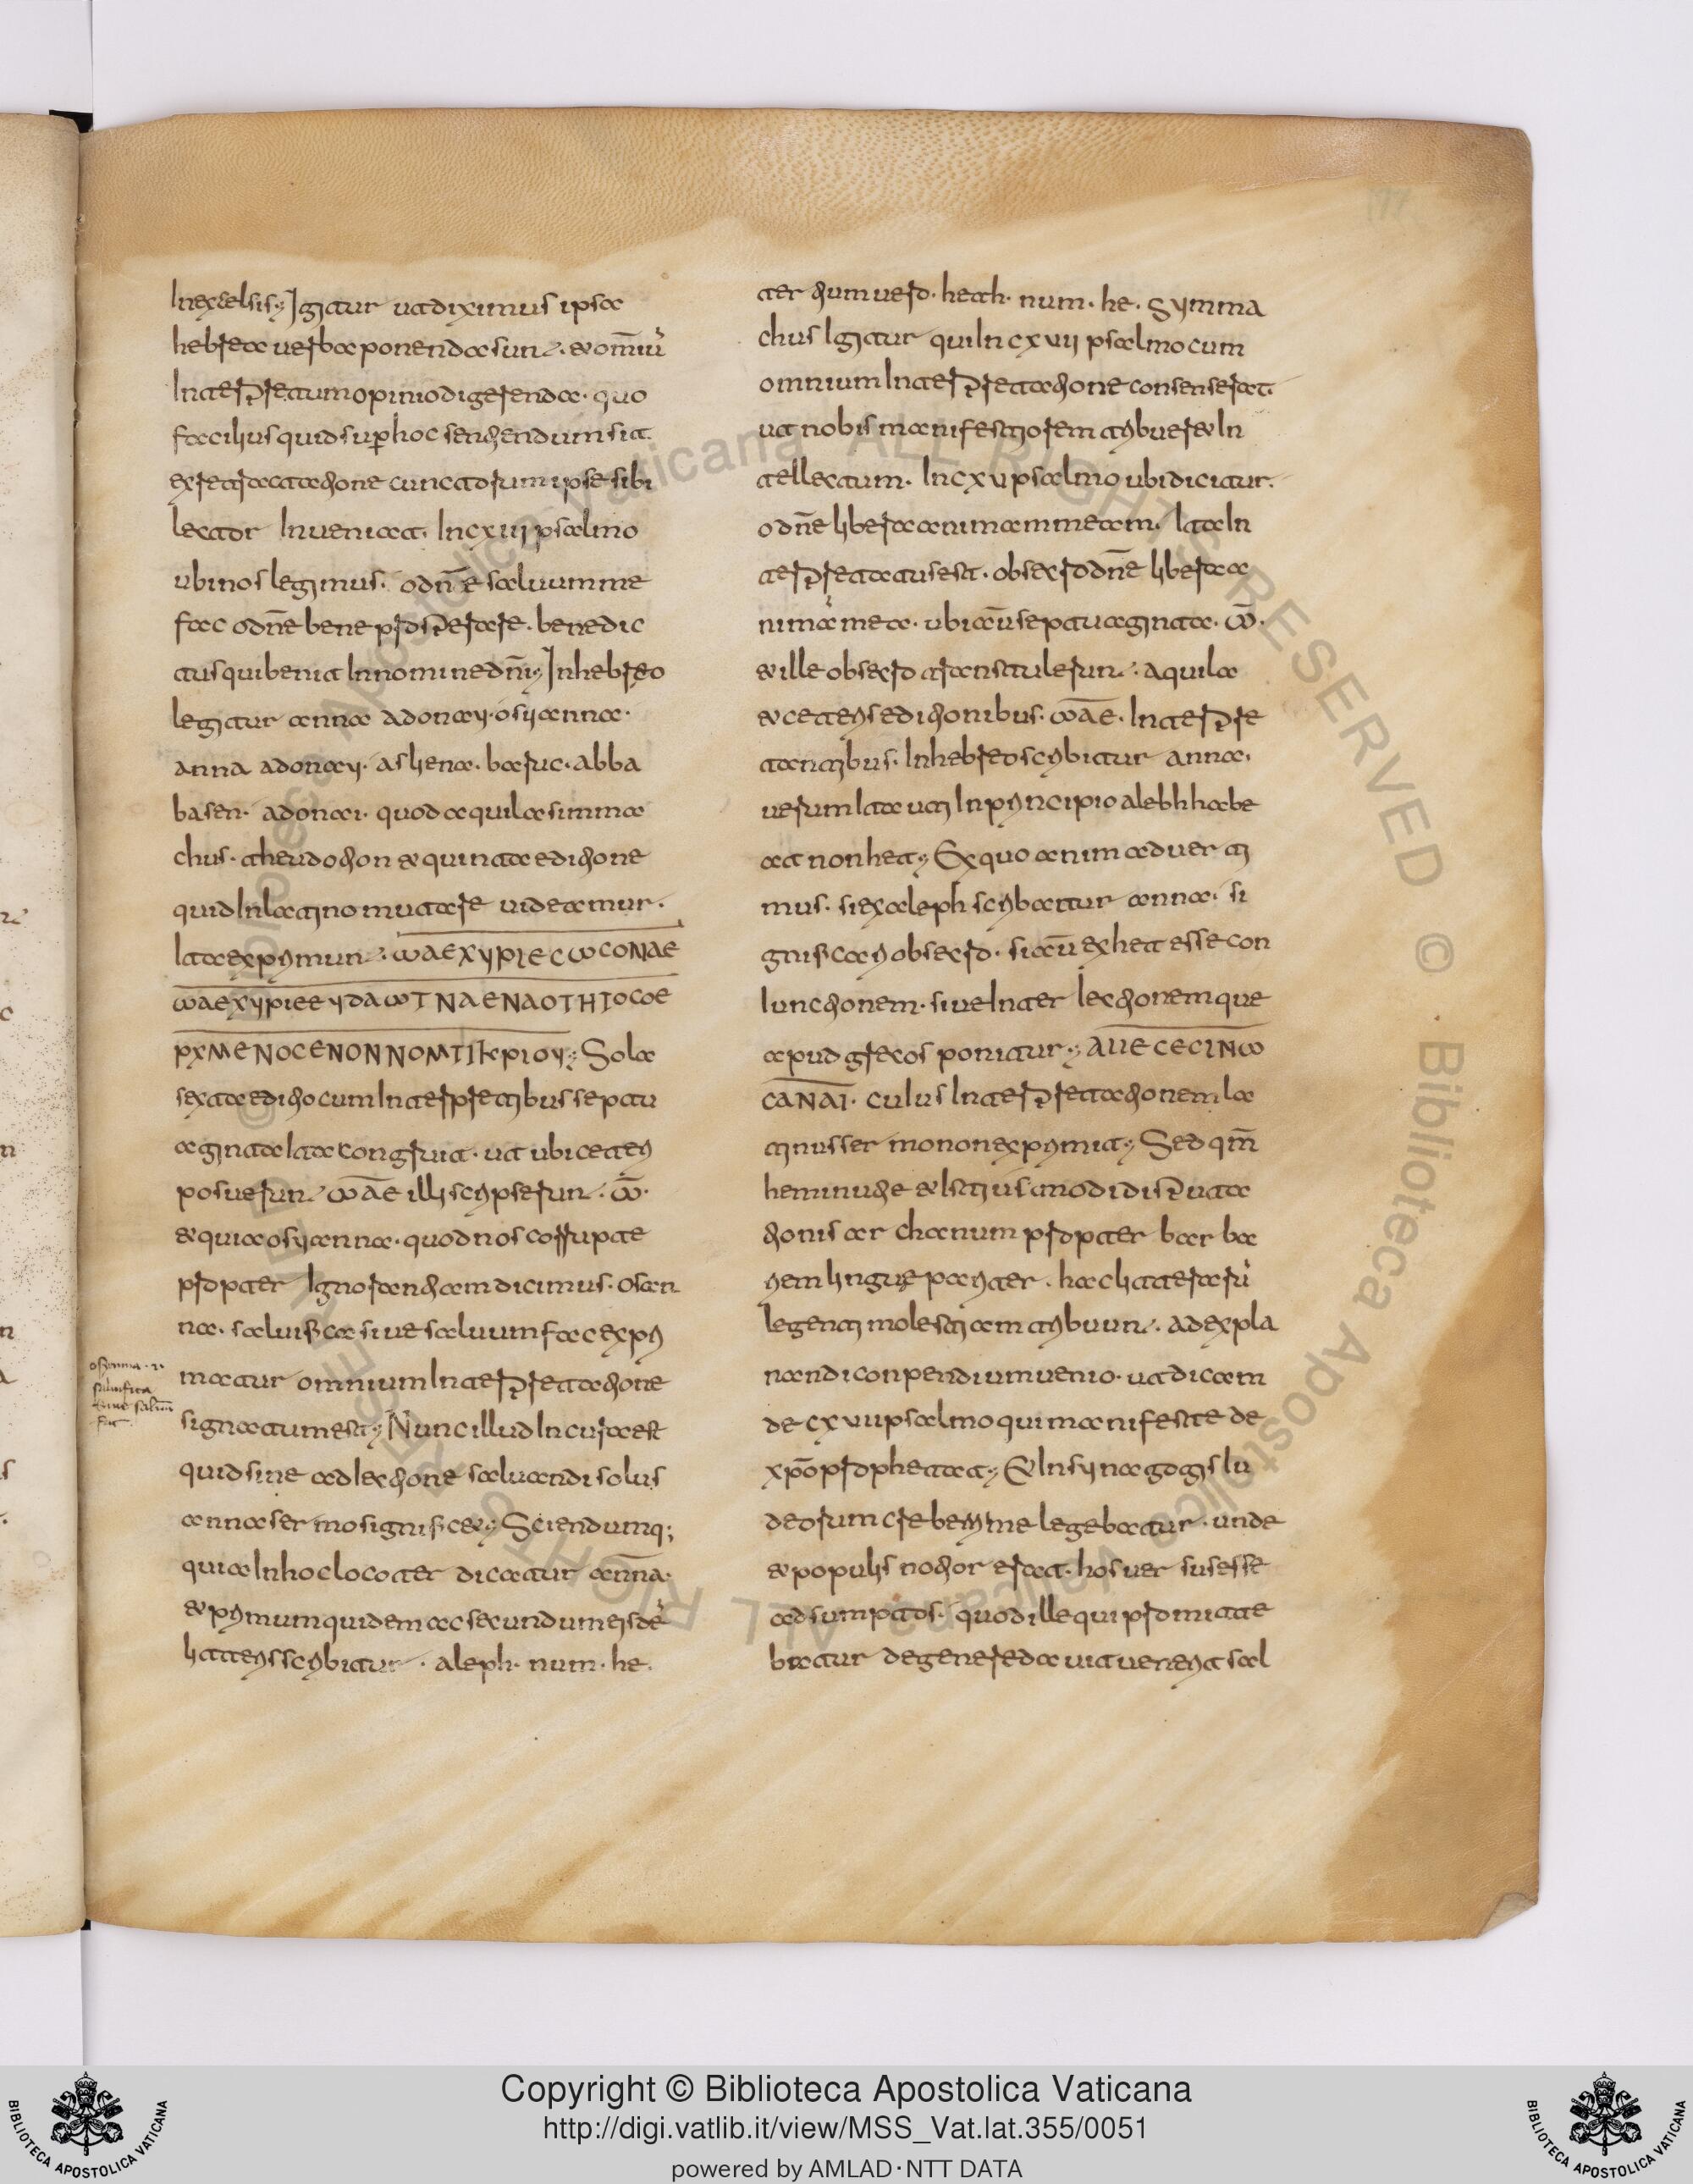 In excelsis; Igitur ut diximus ipsa
hebrea uerba ponenda sunt. & omniu
Interpretum opinio digerenda. quo
facilius quid sup hoc sentiendum sit.
ex retractatione cunctorum ipse sibi
lector Inueniat. In cxuij psalmo
ubi nos legimus. o dn̄e saluum me
fac o dn̄e bene prosperare. benedic
tus qui benit In nomine dn̄i; In hebreo
legitur anna adonay. osyanna.
anna adonay. asliena. baruc. abba
basen. adonai. quod aquila simma
chus. theudotion & quinta editione
quid In latino mutare uideamur.
Ita exprimunt. ωAEXYPIECωCONAE
ωAEXYPIEEYDAωTNAENAOTHTOCOE
PXMENOCENONNOMTIKPIOY; Sola
sexta editio cum Interpretibus septu
aginta Ita congruit. ut ubi ceteri
posuerunt ωAE illi scripserunt. ω.
& quia osyanna. quod nos corrupte
propter Ignorantiam dicimus. osan
na. saluifica siue saluum fac expri
matur omnium Interpretatione
signatum est; Nunc illud In cura est
quid sine adlectione saluandi solus
anna sermo significet; Sciendumq;
quia In hoc loco ter dicatur anna.
& primum quidem ac secundum eisdē
litteris scribitur. aleph. num. he.
osyanna. ÷
saluifica
siue saluū
fac
ter tium uero. heth. num. he. Symma
chus Igitur qui In cxuij psalmo cum
omnium Interpretatione consenserat.
ut nobis manifestiorem tribueret In
tellectum. In cxu psalmo ubi dicitur.
o dn̄e libera animam meam. Ita In
terpretatus est. obsecro dn̄e libera a
nima mea. ubi aū septuaginta. ω.
& ille obsecro transtulerunt. aquila
& ceteris editionibus. ωAE. Interpre
tantibus. In hebreo scribitur anna.
uerum Ita uti In principio alebh habe
at non het; Ex quo animaduerti
mus. si ex aleph scribatur anna. si
gnificari obsecro. si aū ex het esse con
Iunctionem. siue Interlectionem que
apud grecos ponitur; AIIECECINω
CANAI. cuius Interpretationem la
tinus sermo non exprimit; Sed qm̄
heminutie & Istius modi disputa
tionis archanum propter barba
riem linguę pariter. hac litterarū
legenti molestiam tribuunt. ad expla
nandi conpendium uenio. ut dicam
de cxuii psalmo qui manifeste de
xpō prophetat; & In synagogis Iu
deorum creberrime legebatur. unde
& populis notior erat. hos uersus esse
adsumptos. quod ille qui promitte
batur de genere dauit uenerit sal
Copyright © Biblioteca Apostolica Vaticana
http://digi.vatlib.it/view/MSS_Vat.lat.355/0051
powered by AMLAD·NTT DATA
BIBLIOTECA APOSTOLICA VATICANA
BIBLIOTECA APOSTOLICA VATICANA
© Biblioteca Apostolica Vaticana ALL RIGHTS RESERVED © Biblioteca Apostolica Vaticana ALL RIGHTS RESERVED